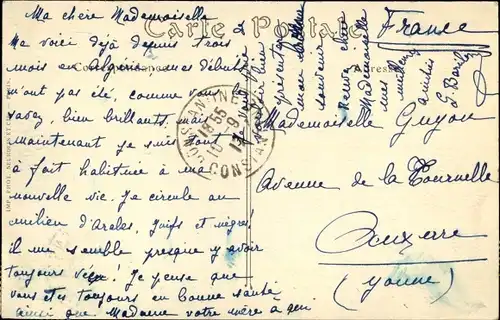 Carte Postale
Correspondance
Adresse
Ma chère Mademoiselle
Me voici déjà depuis trois
mois en Algérie mes débuts
n'ont pas été, comme vous le
savez, bien brillants mais
maintenant je suis tout
à fait habituée à ma
nouvelle vie. Je circule au
milieu d'Arabes, Juifs et nègres
il me semble presque y avoir
toujours vécu! Je pense que
vous êtes toujours en bonne santé
ainsi que Madame votre mère à qui
présenter
mon
souvenir
Recevez chère
Mademoiselle
mes meilleures
amitiés
France
Mademoiselle Guyon
Avenue de la Tournelle
Auxerre
(Yonne)
CONSTANTINE